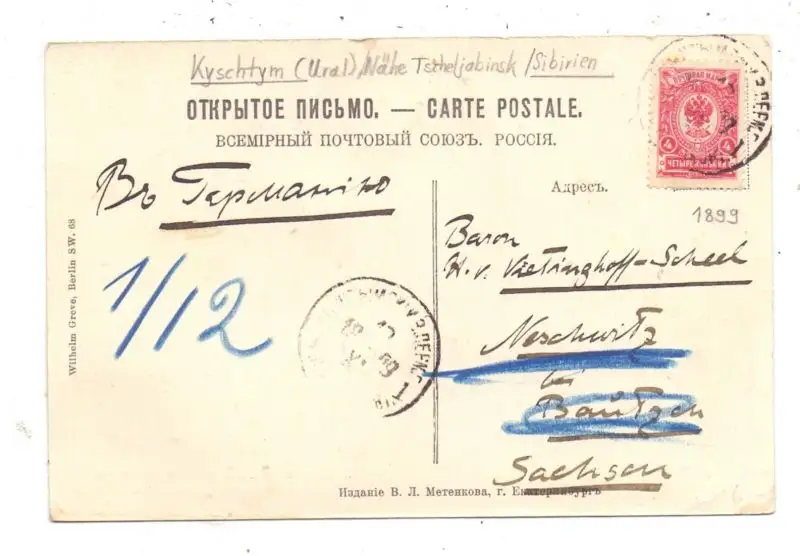 Kyschtym (Ural), Nähe Tscheljabinsk /Sibirien
ОТКРЫТОЕ ПИСЬМО. — CARTE POSTALE.
ВСЕМІРНЫЙ ПОЧТОВЫЙ СОЮЗЪ. РОССІЯ.
4 4
Въ Германію
Адресъ.
1899
Baron
H. v. Vietinghoff-Scheel
Neschwitz
bei
Bautzen
Sachsen
1/12
Wilhelm Greve, Berlin SW. 68
Изданіе В. Л. Метенкова, г. Екатеринбургъ